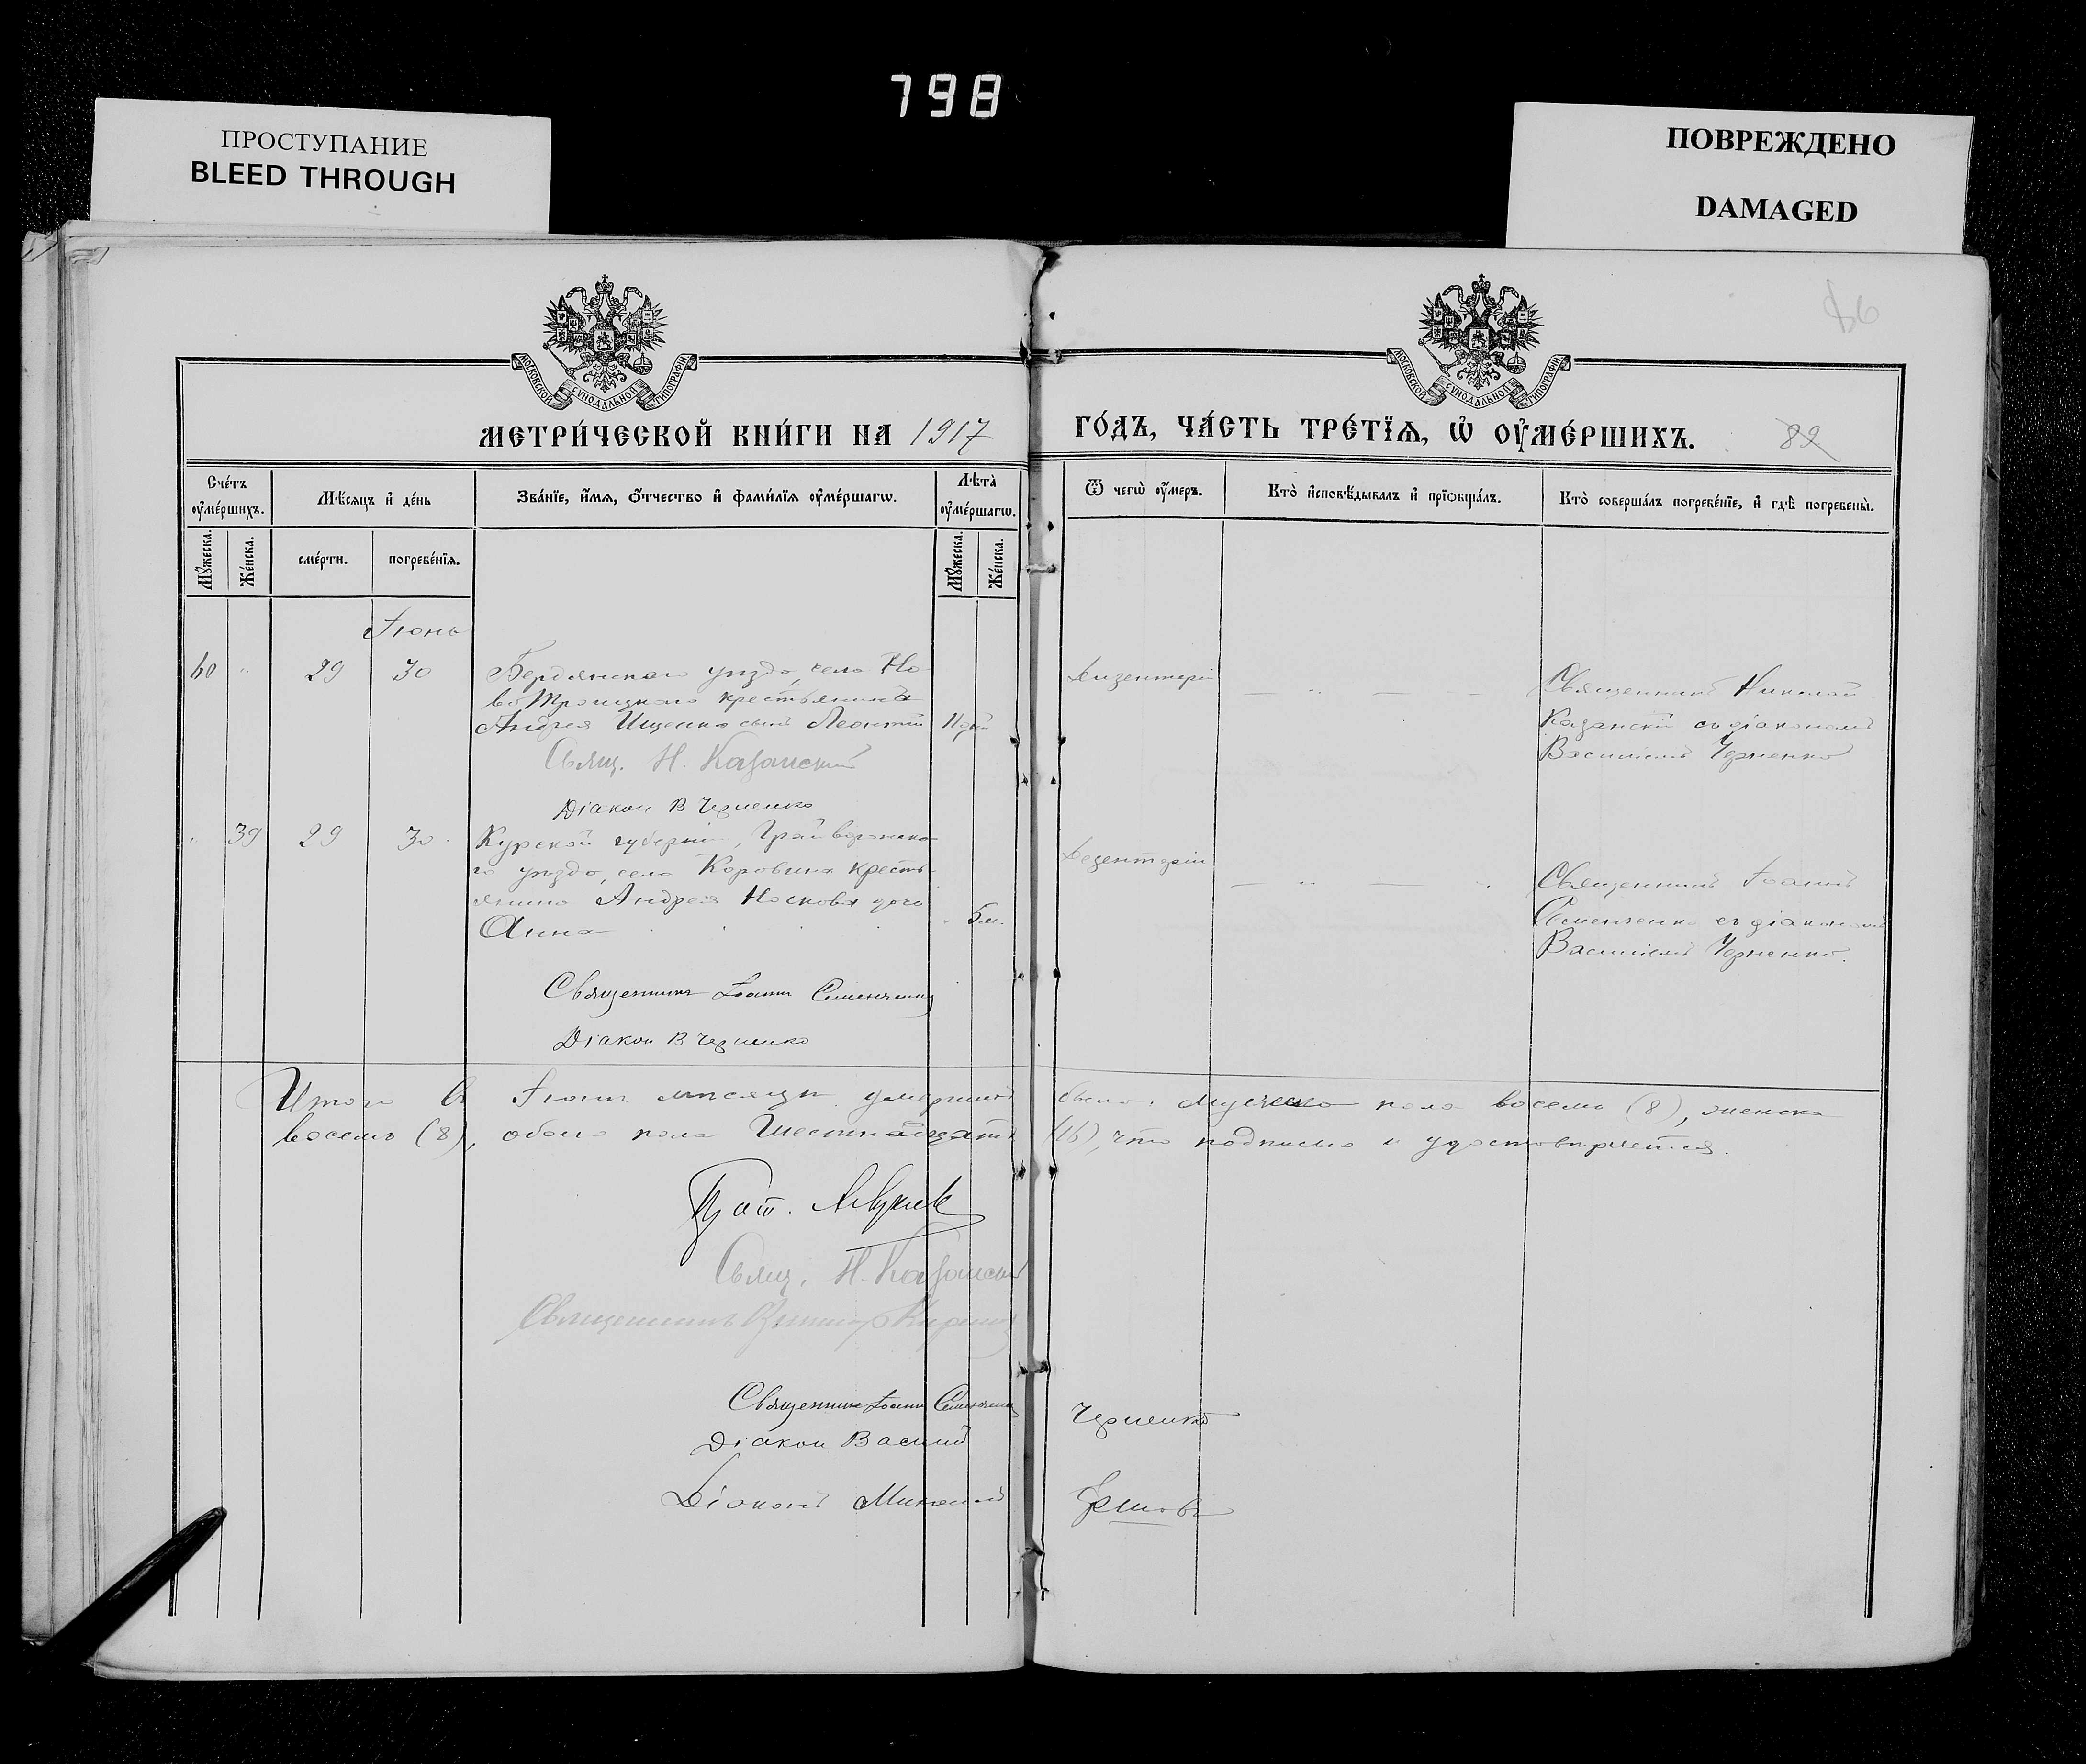 798
ПРОСТУПАНИЕ
BLEED THROUGH
ПОВРЕЖДЕНО
DAMAGED
МОСКОВСКОЙ СУНОДАЛЬНОЙ ТИПОГРАФІИ
МОСКОВСКОЙ СУНОДАЛЬНОЙ ТИПОГРАФІИ
МЕТРИ́ЧЕСКОЙ КНИ́ГИ НА 1917
ГО́ДЪ, ЧА́СТЬ ТРЕ́ТЇѦ, Ѡ҆ ОУ҆МЕ́РШИХЪ.
89
Сче́тъ оу҆ме́ршихъ.
Мѣ́сяцъ и҆ де́нь
Зва́нїе, и҆́мѧ, ѻ҆́тчество и҆ фами́лїѧ оу҆ме́ршагѡ.
Лѣта̀ оу҆ме́ршагѡ.
Ѿ чегѡ̀ оу҆́меръ.
Кто̀ и҆сповѣ́дывалъ и҆ прїѡбща́лъ.
Кто̀ соверша́лъ погребе́нїе, и҆ гдѣ̀ погребены̀.
Мꙋ́жеска.
Же́нска.
сме́рти.
погребе́нїѧ.
Мꙋ́жеска.
Же́нска.
Іюнь
40 " 29 30
Бердянскаго уѣзда, села Но-
во Троицкаго крестьянина
Андрея Ищенко сынъ Леонтій
Свящ. Н. Казанскій
Діакон В Черненко
Дизентеріи
Священникъ Николай
Казанскій съ діакономъ
Василіемъ Черненко
39 29 30
Курской губерніи, Грайворонска-
го уѣзда, села Коровина кресть-
янина Андрея Носкова дочь
Анна
5 м.
Священникъ Іоаннъ Семенченко
Діакон В Черненко
Дезентеріи
Священникъ Іоаннъ
Семенченко съ діакономъ
Василіемъ Черненко.
Итого въ Іюнѣ мѣсяцѣ умершихъ было: мужеска пола восемь (8), женска
восемь (8), обоего пола шестнадцать (16), что подписью и удостовѣряется.
Прот.
Свящ. Н. Казанскій
Священникъ
Священникъ Іоаннъ Семенченко
Діакон Василій Черненко
Діаконъ Михаилъ